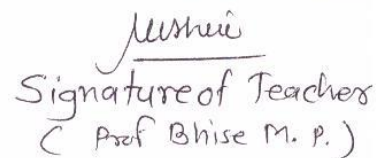 Signature of Teacher
( Prof Bhise M. P. )